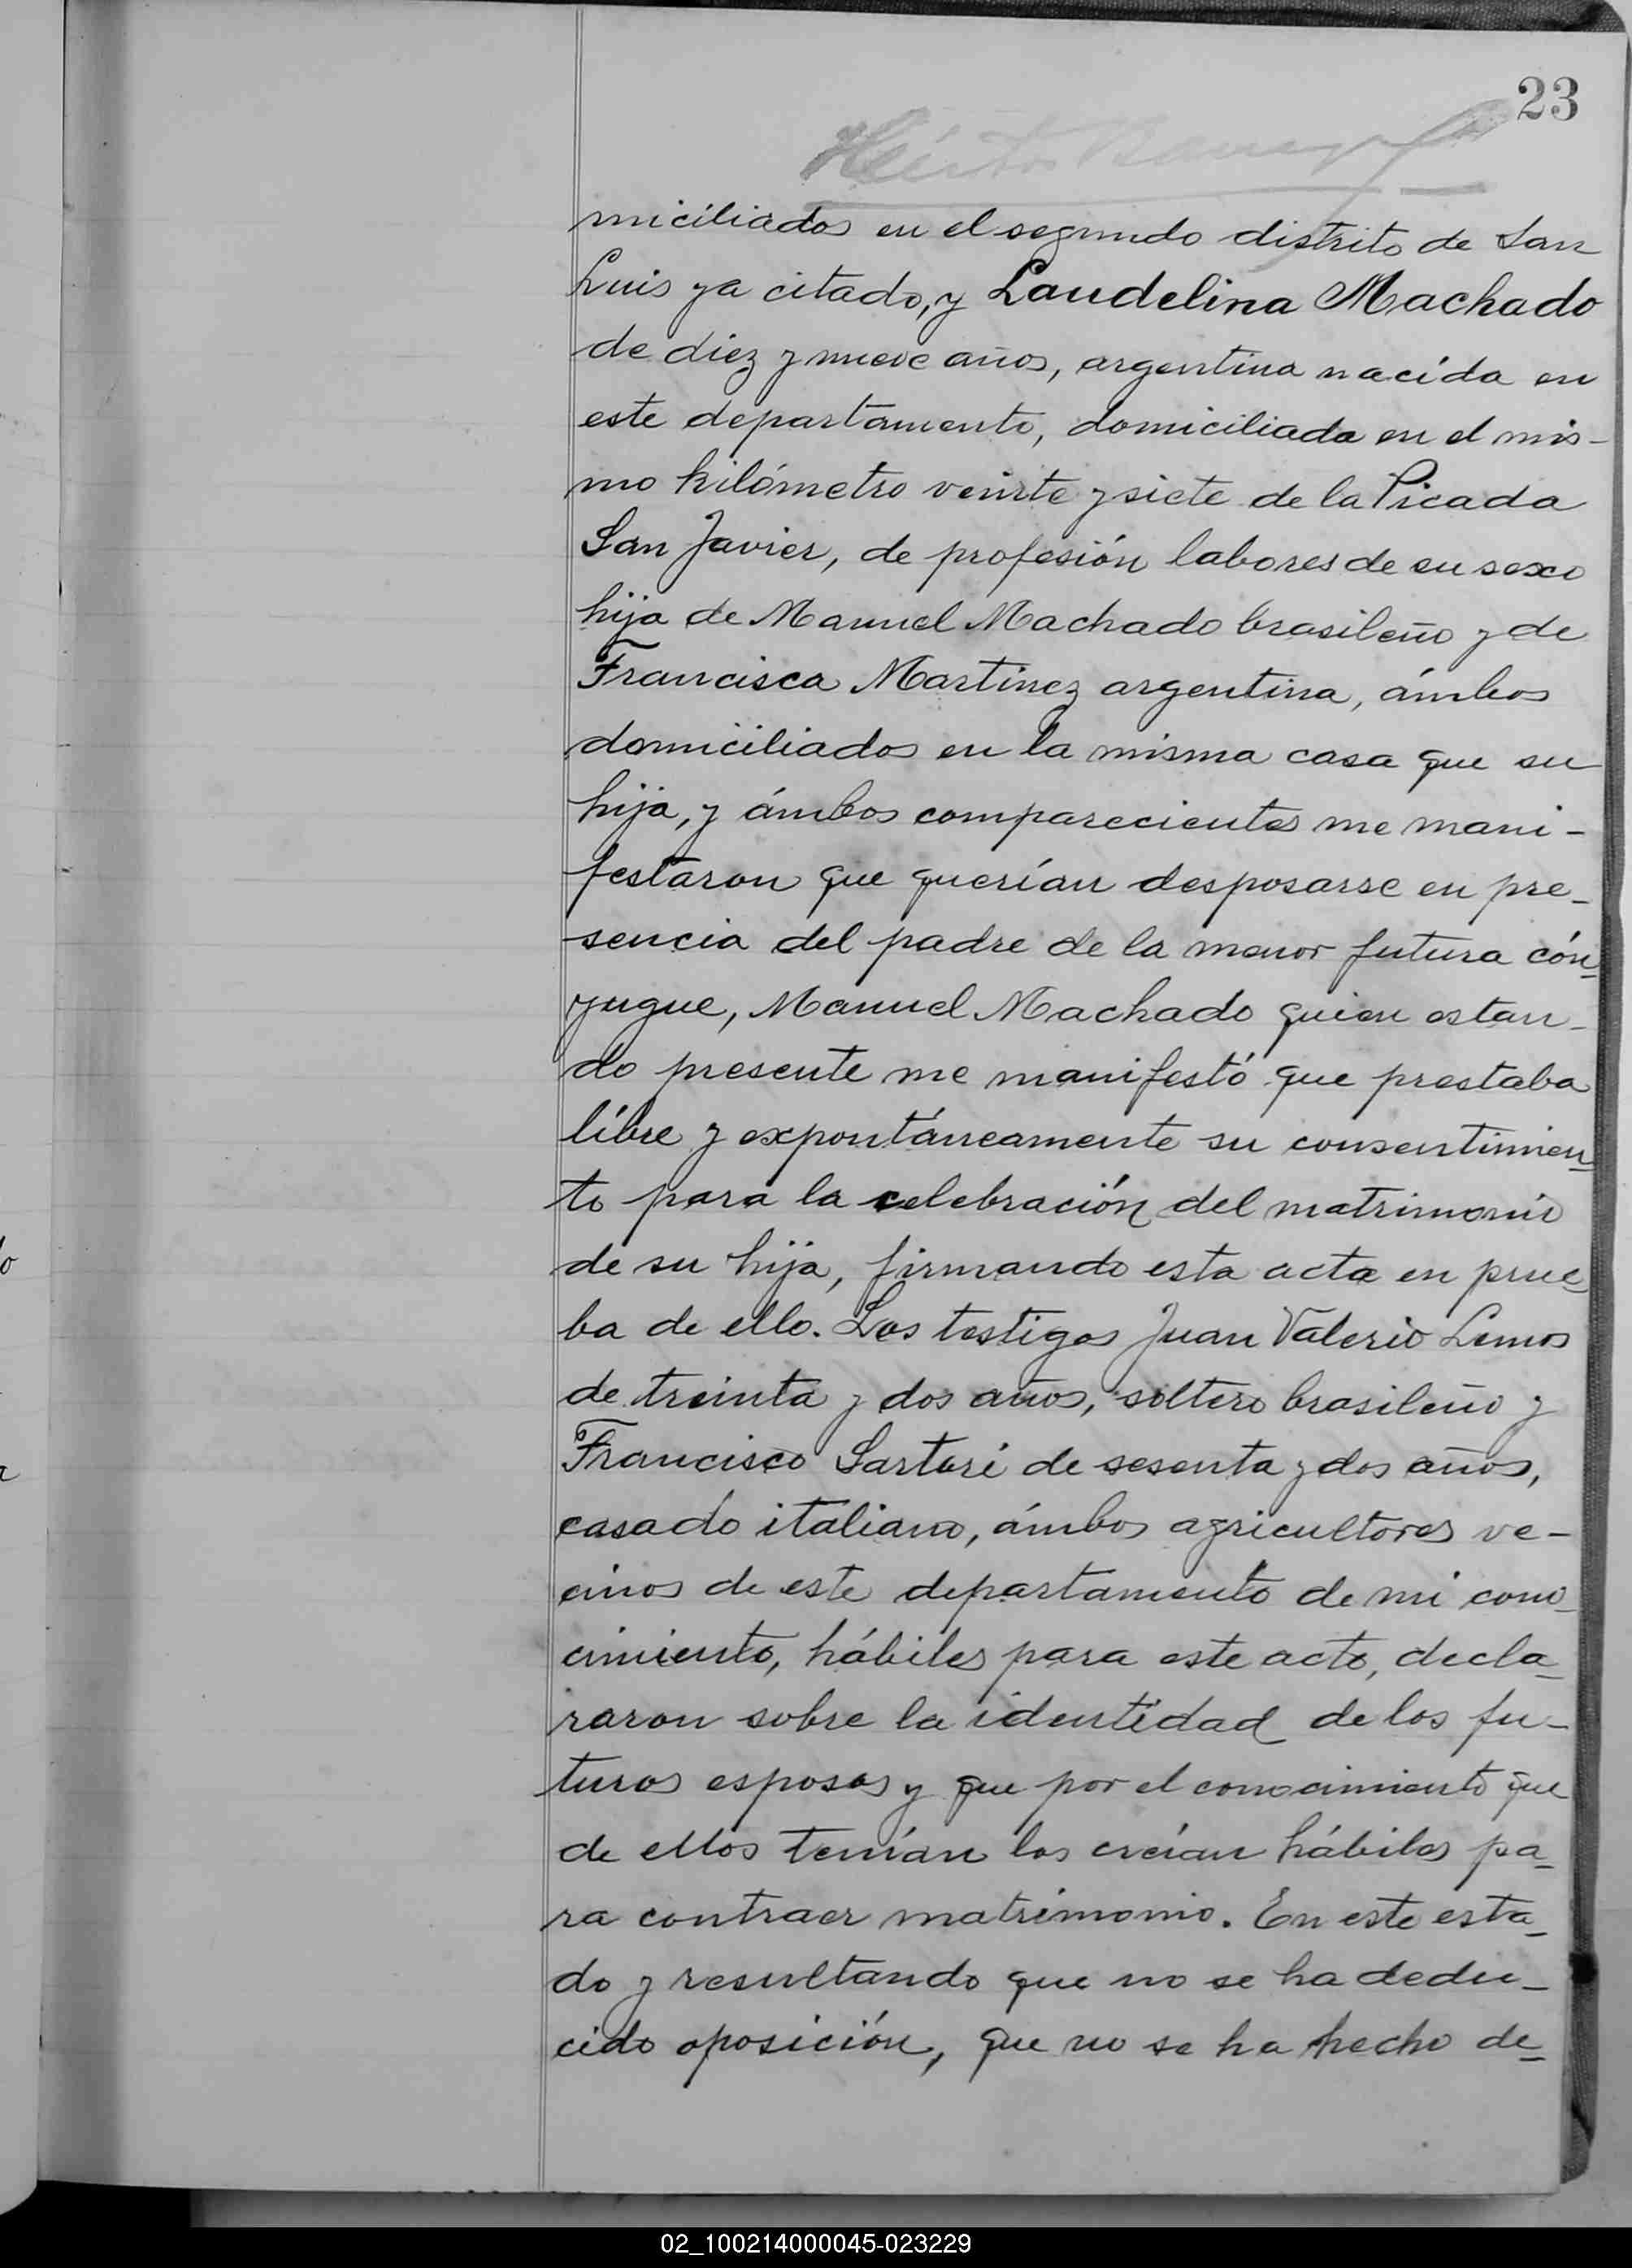 23
miciliados en el segundo distrito de San
Luis ya citado, y Laudelina Machado
de diez y nueve años, argentina nacida en
este departamento, domiciliada en el mis-
mo kilómetro veinte y siete de la Picada
San Javier, de profesión labores de su sexo
hija de Manuel Machado brasileño y de
Francisca Martinez argentina, ámbos
domiciliados en la misma casa que su
hija, y ámbos comparecientes me mani-
festaron que querían desposarse en pre-
sencia del padre de la menor futura cón-
yugue, Manuel Machado quien estan-
do presente me manifestó que prestaba
líbre y expontáneamente su consentimien-
to para la celebración del matrimonio
de su hija, firmando esta acta en prue-
ba de ello. Los testigos Juan Valerio Lemos
de treinta y dos años, soltero brasileño y
Francisco Sartori de sesenta y dos años,
casado italiano, ámbos agricultores ve-
cinos de este departamento de mi cono-
cimiento, hábiles para este acto, decla-
raron sobre la identidad de los fu-
turos esposos y que por el conocimiento que
de ellos tenían los creían hábiles pa-
ra contraer matrimonio. En este esta-
do y resultando que no se ha dedu-
cido oposición, que no se ha hecho de-
02_100214000045-023229